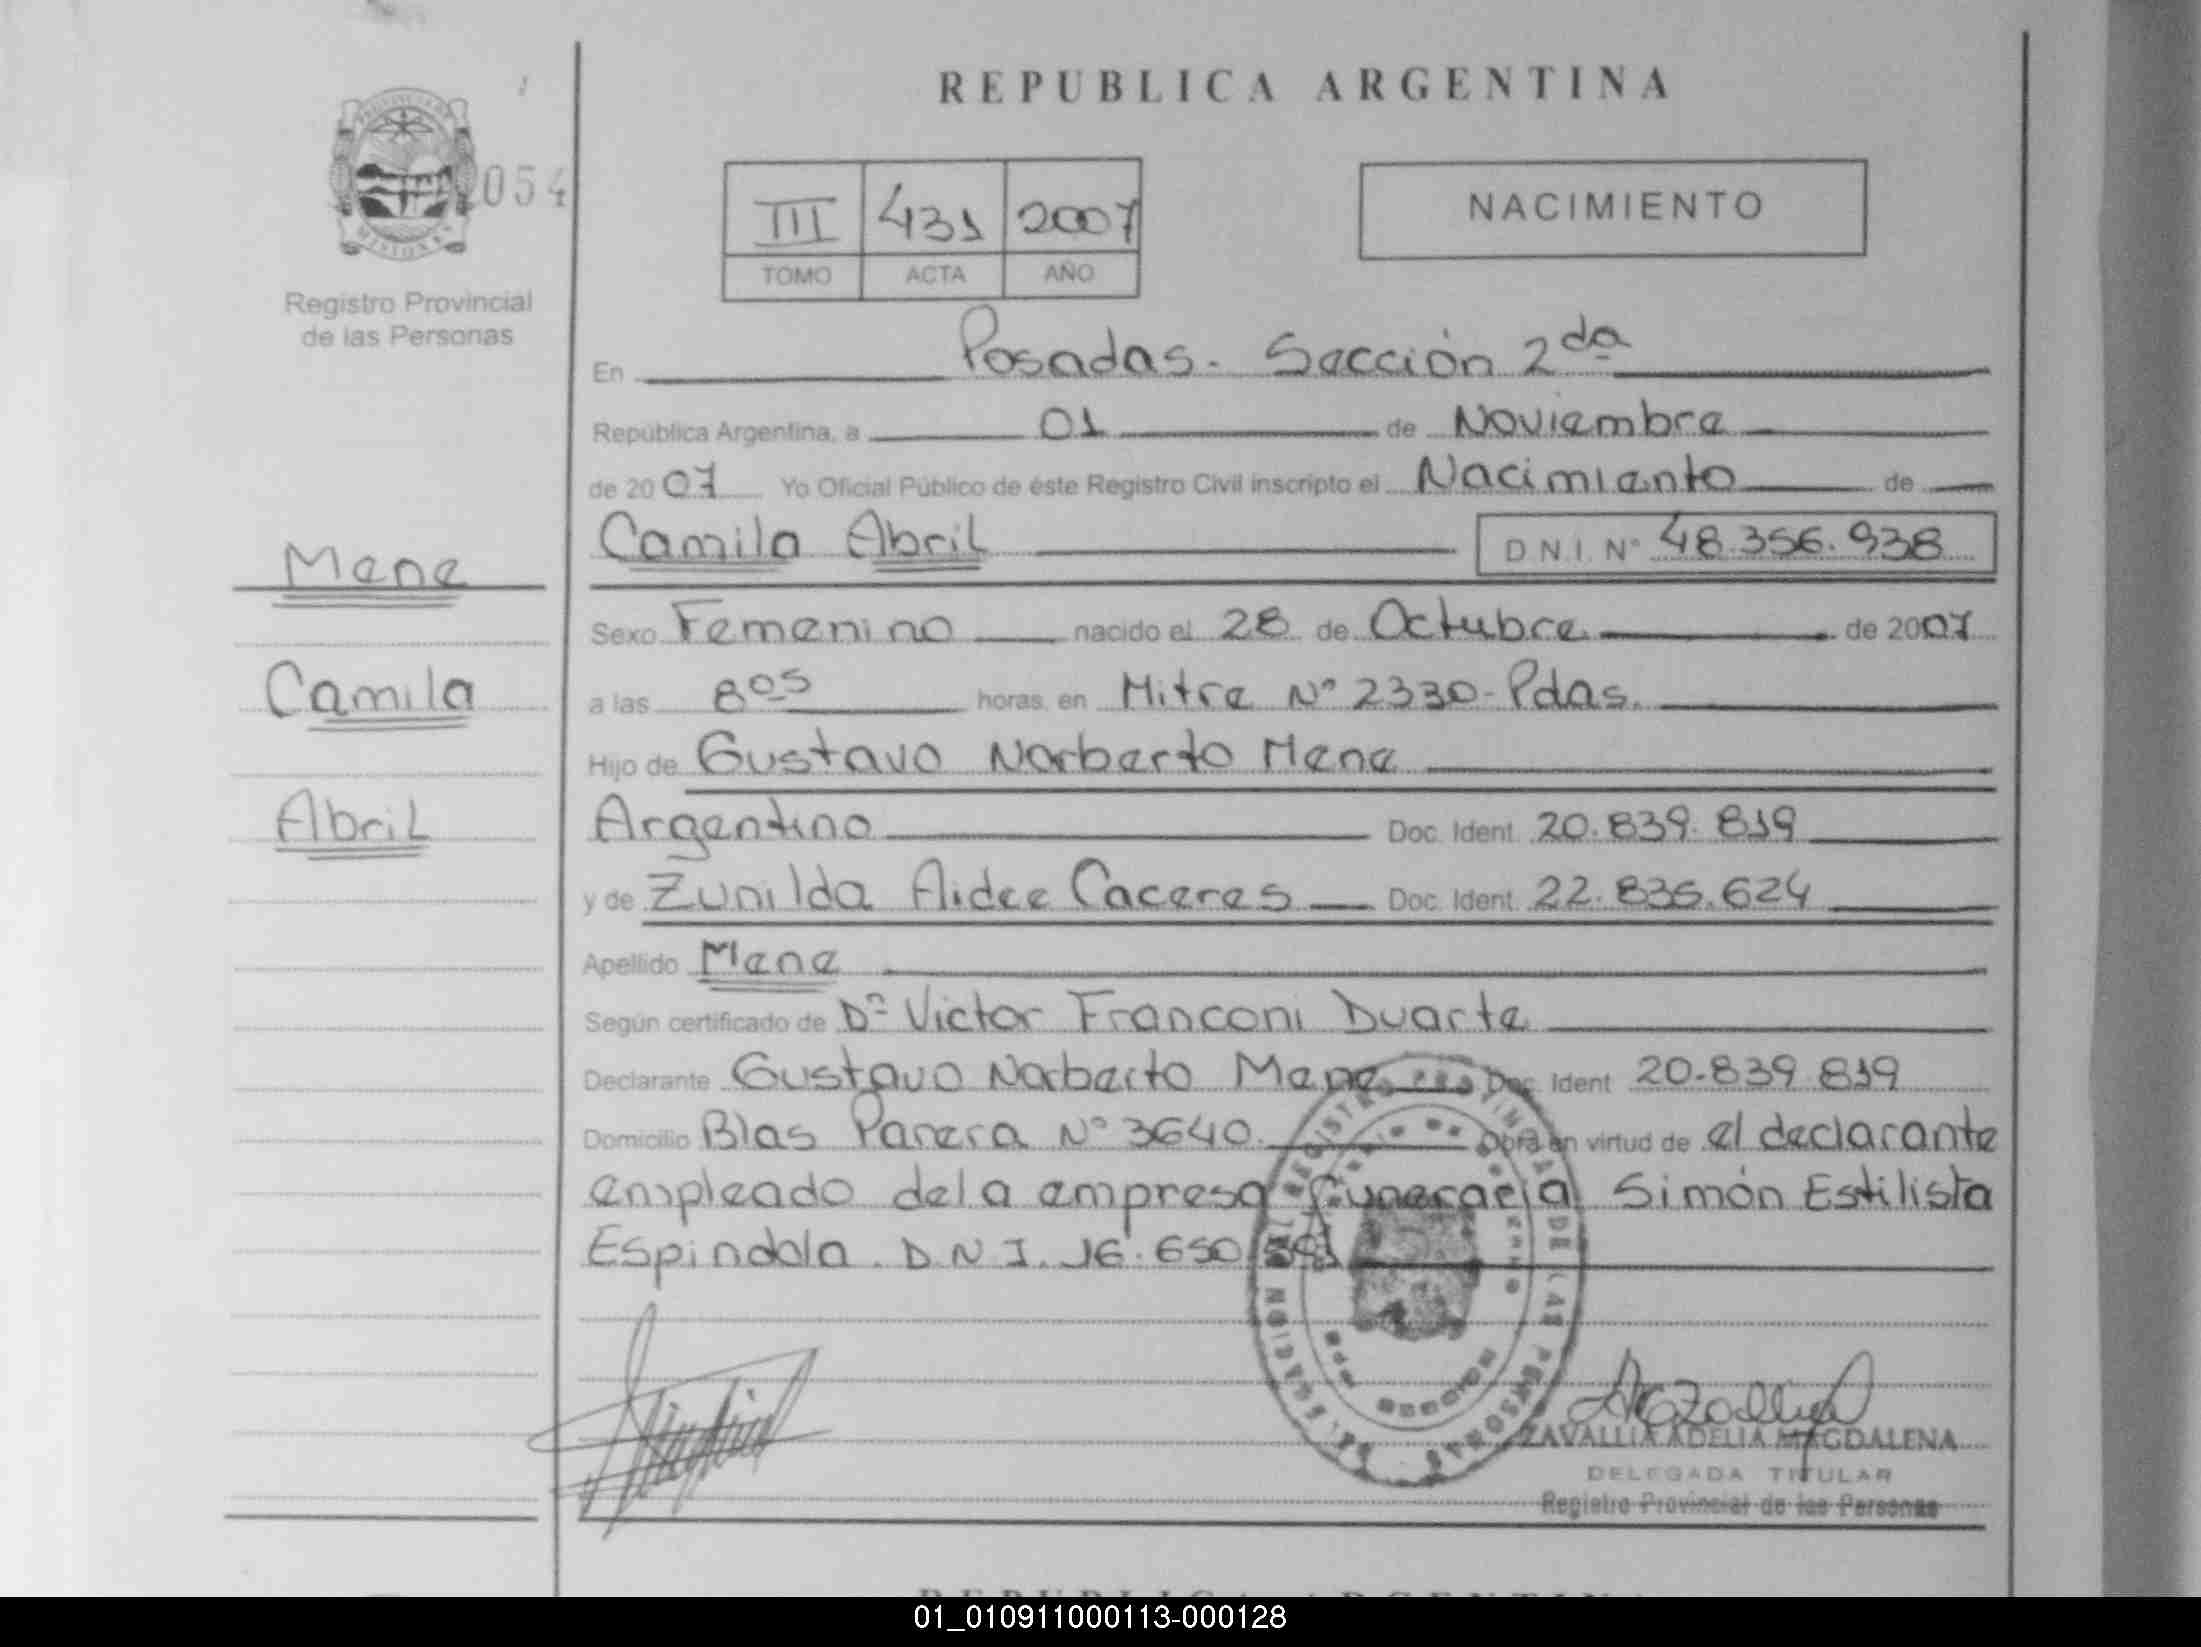 REPUBLICA ARGENTINA
054
III 431 2007
TOMO ACTA AÑO
NACIMIENTO
Registro Provincial
de las Personas
En Posadas. Sección 2da
República Argentina, a 01 de Noviembre
de 2007 Yo Oficial Público de éste Registro Civil inscripto el Nacimiento de
Camila Abril D.N.I. Nº 48.356.938
Mene
Camila
Abril
Sexo Femenino nacido el 28 de Octubre de 2007
a las 8 05 horas, en Mitre Nº 2330- Pdas.
Hijo de Gustavo Norberto Mene
Argentino Doc. Ident. 20.839.819
y de Zunilda Aidee Caceres Doc. Ident. 22.835.624
Apellido Mene
Según certificado de Dr Victor Franconi Duarte
Declarante Gustavo Norberto Mene Doc. Ident 20.839 819
Domicilio Blas Parera Nº 3640. Obra en virtud de el declarante
empleado de la empresa Simón Estilista
Espindola. D.N.I. 16.650
REGISTRO PROVINCIAL DE LAS PERSONAS
ZAVALLIA ADELIA MAGDALENA
DELEGADA TITULAR
Registro Provincial de las Personas
01_010911000113-000128